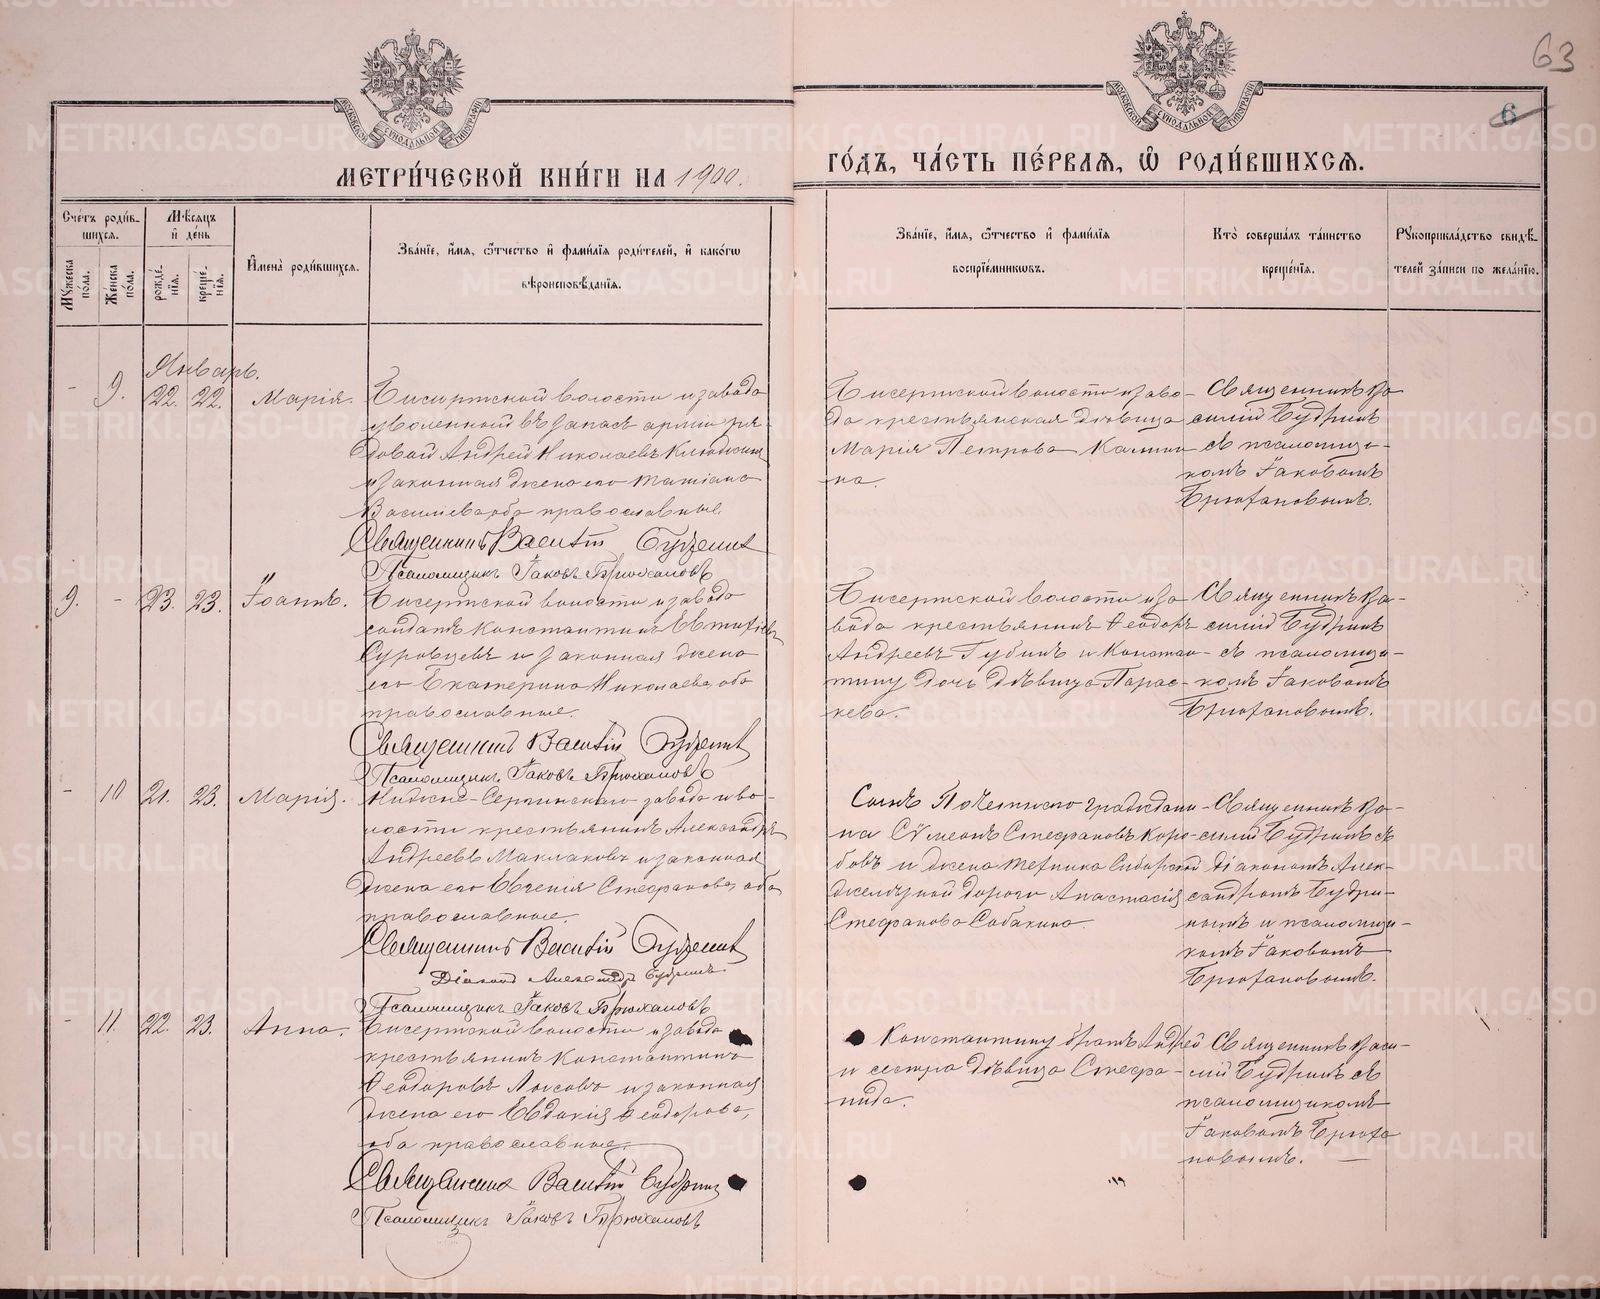 63
6
МОСКОВСКОЙ СѴНОДАЛЬНОЙ ТИПОГРАФІИ
МОСКОВСКОЙ СѴНОДАЛЬНОЙ ТИПОГРАФІИ
МЕТРИ́ЧЕСКОЙ КНИ́ГИ НА 1900.
ГО́ДЪ, ЧА́СТЬ ПЕ́РВАѦ, Ѡ҆ РОДИ́ВШИХСѦ.
Сче́тъ роди́в-
шихсѧ.
Мꙋ́жеска по́ла.
Же́нска по́ла.
Мѣ́сѧцъ
и҆ де́нь
рожде́-
нїѧ.
креще́-
нїѧ.
И҆мена̀ роди́вшихсѧ.
Зва́нїе, и҆́мѧ, ѻ҆́тчество и҆ фами́лїѧ роди́телей, и҆ како́гѡ
вѣроисповѣ́данїѧ.
Зва́нїе, и҆́мѧ, ѻ҆́тчество и҆ фами́лїѧ
воспрїе́мникѡвъ.
Кто̀ соверша́лъ та́инство
креще́нїѧ.
Рꙋкоприкла́дство свидѣ́-
телей за́писи по жела́нїю.
Январь.
- 9. 22. 22. Марія.
Бисертской волости и завода
уволенный въ запасъ арміи ря-
довой Андрей Николаевъ
и законная жена его Татіана
Васильева, оба православные.
Священникъ Василій Будринъ
Псаломщикъ Іаковъ Брюхановъ
Бисертской волости и заво-
да крестьянская дѣвица
Марія Петрова Калини-
на.
Священникъ Ва-
силій Будринъ
съ псаломщи-
комъ Іаковомъ
Брюхановымъ.
9. - 23. 23. Іоаннъ.
Бисертской волости и завода
солдатъ Константинъ Евтихіевъ
Суровцевъ и законная жена
его Екатерина Николаева, оба
православные.
Священникъ Василій Будринъ
Псаломщикъ Іаковъ Брюхановъ
Бисертской волости и за-
вода крестьянинъ Ѳеодоръ
Андреевъ Губинъ и Констан-
тину дочь дѣвица Парас-
кева.
Священникъ Ва-
силій Будринъ
съ псаломщи-
комъ Іаковомъ
Брюхановымъ.
- 10 21. 23. Марія.
Нижне-Сергинскаго завода и во-
лости крестьянинъ Александръ
Андреевъ Маклаковъ и законная
жена его Евгенія Стефанова, оба
православные.
Священникъ Василій Будринъ
Діаконъ Александръ Будринъ
Псаломщикъ Іаковъ Брюхановъ
Сынъ Почетнаго граждани-
на Сѵмеонъ Стефановъ Коро-
бовъ и жена техника Сибирской
желѣзной дороги Анастасія
Стефанова Собакина.
Священникъ Ва-
силій Будринъ съ
діакономъ Алек-
сандромъ Будри-
нымъ и псаломщи-
комъ Іаковомъ
Брюхановымъ.
- 11. 22. 23. Анна.
Бисертской волости и завода
крестьянинъ Константинъ
Ѳеодоровъ и законная
жена его Евдокія Ѳеодорова,
оба православные.
Священникъ Василій Будринъ
Псаломщикъ Іаковъ Брюхановъ
Константину братъ Андрей
и сестра дѣвица Стефа-
нида.
Священникъ Васи-
лій Будринъ съ
псаломщикомъ
Іаковомъ Брюха-
новымъ.
METRIKI.GASO-URAL.RU